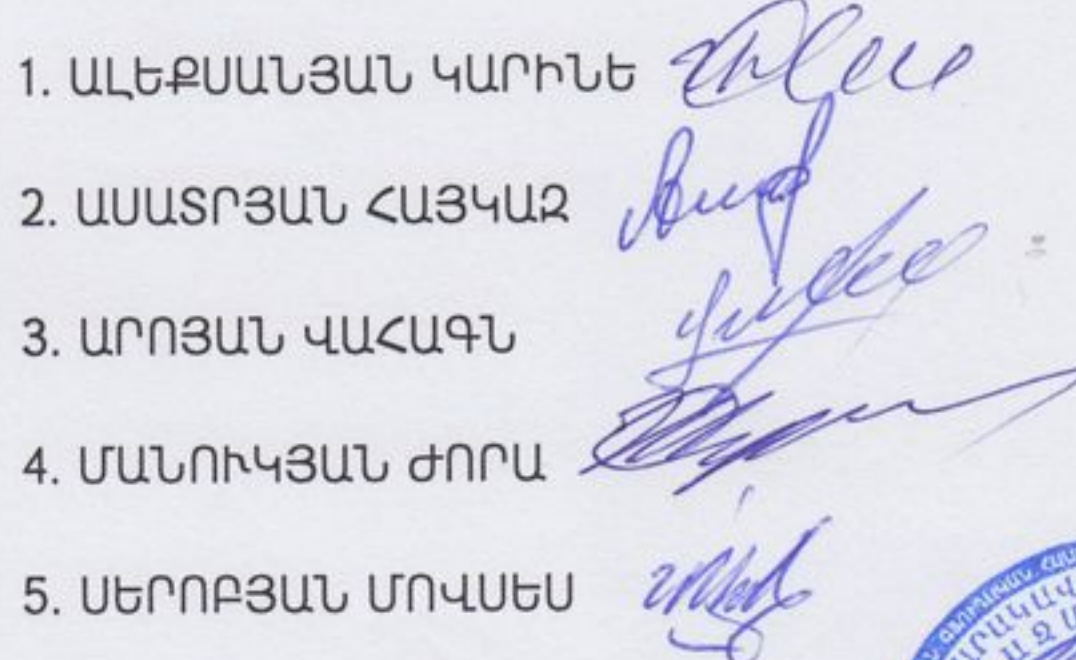 1. ԱԼԵՔՍԱՆՅԱՆ ԿԱՐԻՆԵ
2. ԱՍԱՏՐՅԱՆ ՀԱՅԿԱԶ
3. ԱՐՈՅԱՆ ՎԱՀԱԳՆ
4. ՄԱՆՈՒԿՅԱՆ ԺՈՐԱ
5. ՍԵՐՈԲՅԱՆ ՄՈՎՍԵՍ